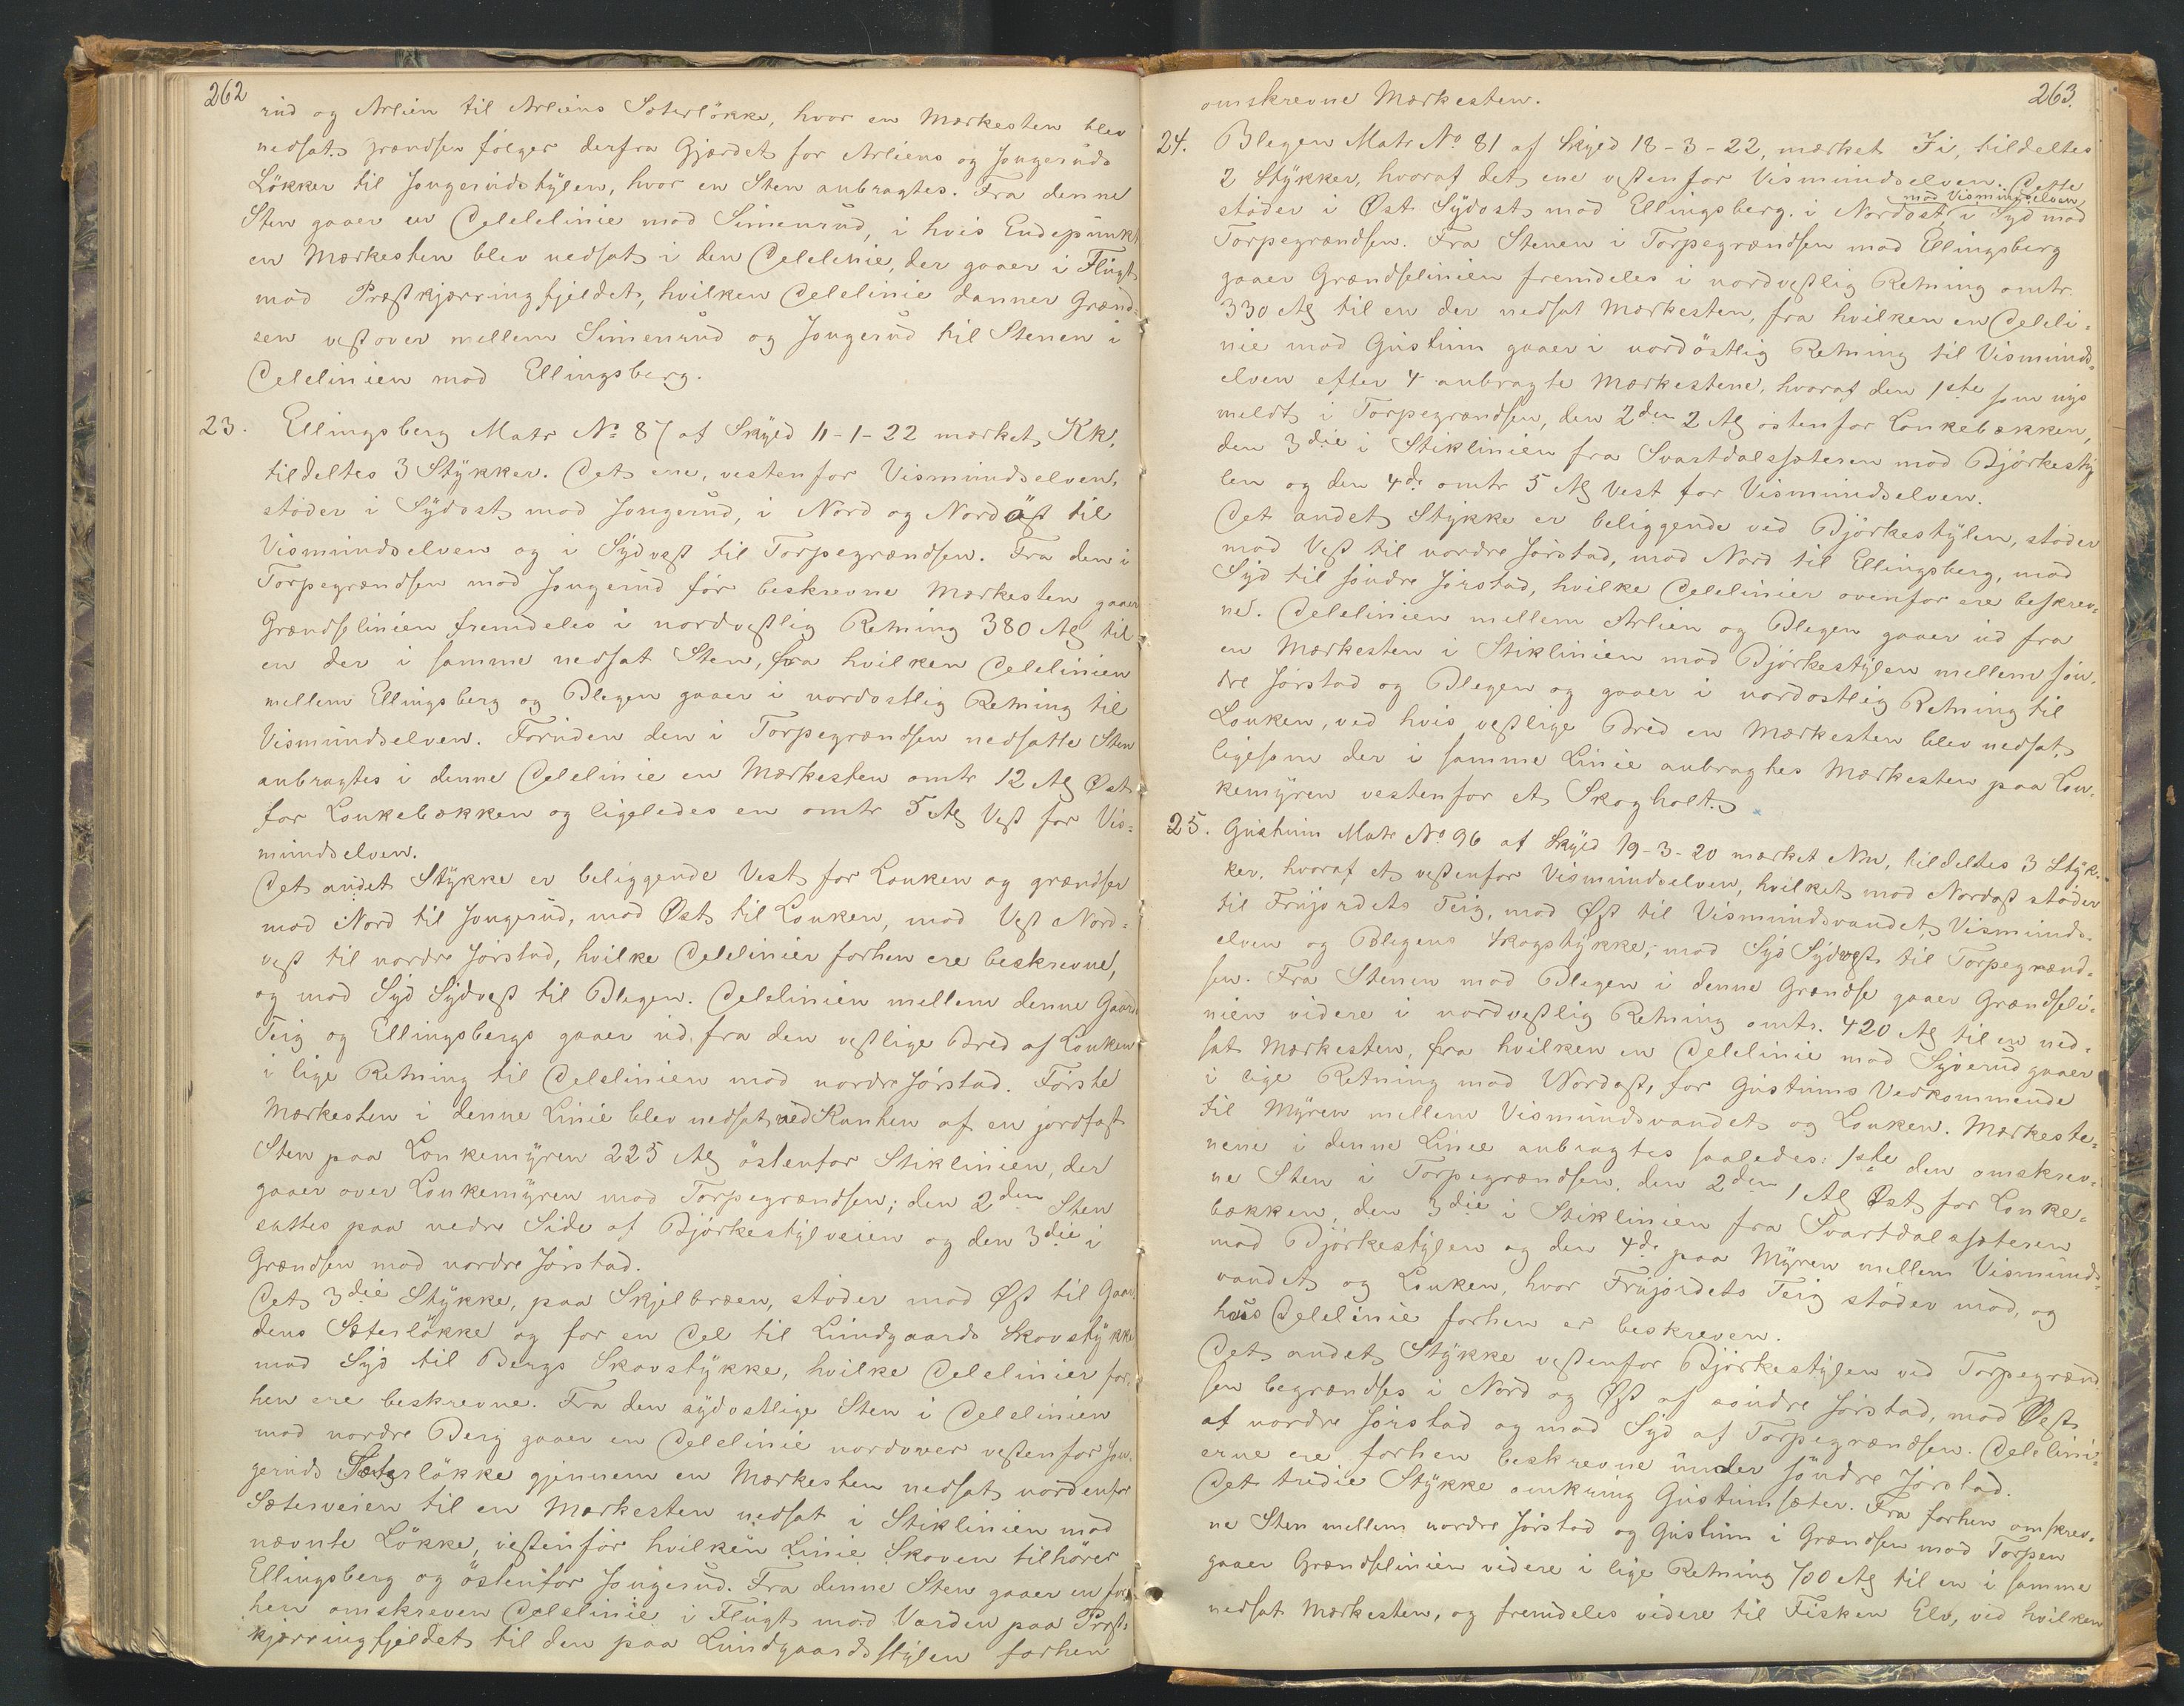 262
rud og Arlien til Arliens Sæterlökke, hvor en Mærkesten blev
nedsat. Grændsen følger derfra Gjærdet for Arliens og Jongeruds
Lökker til Jongerudstylen, hvor en Sten anbragtes. Fra denne
Sten gaaer en Delelinie mod Simenrud, i hvis Endepunkt
en Mærkesten blev nedsat i den Delelinie, der gaaer i Flugt
mod Præstkjærringfjeldet, hvilken Delelinie danner Grænd-
sen vestover mellem Simenrud og Jongerud til Stenen i
Delelinien mod Ellingsberg.
23. Ellingsberg Matr No 87 af Skyld 11-1-22 mærket Kk,
tildeltes 3 Stykker. Det ene, vestenfor Vismundselven,
stöder i Sydost mod Jongerud, i Nord og Nordöst til
Vismundselven og i Sydvest til Torpegrændsen. Fra den i
Torpegrændsen mod Jongerud för beskrevne Mærkesten gaaer
Grændselinien fremdeles i nordvestlig Retning 380 Al til
en der i samme nedsat Sten, fra hvilken Delelinien
mellem Ellingsberg og Blegen gaaer i nordostlig Retning til
Vismundselven. Foruden den i Torpegrændsen nedsatte Sten
anbragtes i denne Delelinie en Mærkesten omtr 12 Al Øst
for Lonkebækken og ligeledes en omtr 5 Al Vest for Vis-
mundselven.
Det andet Stykke er beliggende Vest for Lonken og grændser
mod Nord til Jongerud, mod Øst til Lonken, mod Vest Nord-
vest til nordre Jörstad, hvilke Delelinier forhen ere beskrevne,
og mod Syd Sydvest til Blegen. Delelinien mellem denne Gaards
Teig og Ellingsbergs gaaer ud fra den vestlige Bred af Lonken
i lige Retning til Delelinien mod nordre Jörstad. Förste
Mærkesten i denne Linie blev nedsat ved Kanten af en jordfast
Sten paa Lonkemyren 225 Al östenfor Stiklinien, der
gaaer over Lonkemyren mod Torpegrændsen; den 2den Sten
sattes paa nedre Side af Björkestylveien og den 3die i
Grændsen mod nordre Jörstad.
Det 3die Stykke, paa Skjelbræen, stöder mod Øst til Gaar-
dens Sæterlökke og for en Del til Lundgaards Skovstykke
mod Syd til Bergs Skovstykke, hvilke Delelinier for-
hen ere beskrevne. Fra den sydostlige Sten i Delelinien
mod nordre Berg gaaer en Delelinie nordover vestenfor Jon-
geruds Sæterlökke gjennem en Mærkesten nedsat nordenfor
Sæterveien til en Mærkesten nedsat i Stiklinien mod
nævnte Lökke, vestenfor hvilken Linie Skoven tilhörer
Ellingsberg og östenfor Jongerud. Fra denne Sten gaaer en for-
hen omskreven Delelinie i Flugt mod Varden paa Præst-
kjærringfjeldet til den paa Lundgaardsstylen forhen
263.
omskrevne Mærkesten.
24. Blegen Matr No 81 af Skyld 18-3-22, mærket Ii, tildeltes
2 Stykker, hvoraf det ene vestenfor Vismundselven. Dette
mod Vismundselven,
stöder i Øst Sydost mod Ellingsberg. i Nordost i Syd mod
Torpegrændsen. Fra Stenen i Torpegrændsen mod Ellingsberg
gaaer Grændselinien fremdeles i nordvestlig Retning omtr.
330 Al til en der nedsat Mærkesten, fra hvilken en Deleli-
nie mod Gustum gaaer i nordöstlig Retning til Vismunds-
elven efter 4 anbragte Mærkestene, hvoraf den 1ste som nys
meldt i Torpegrændsen, den 2den 2 Al östenfor Lonkebækken,
den 3die i Stiklinien fra Svartdalssæteren mod Björkesty-
len og den 4de omtr 5 Al Vest for Vismundselven.
Det andet Stykke er beliggende ved Björkestylen, stöder
mod Vest til nordre Jörstad, mod Nord til Ellingsberg, mod
Syd til söndre Jörstad, hvilke Delelinier ovenfor ere beskrev-
ne. Delelinien mellem Arlien og Blegen gaaer ud fra
en Mærkesten i Stiklinien mod Björkestylen mellem sön-
dre Jörstad og Blegen og gaaer i nordostlig Retning til
Lonken, ved hvis vestlige Bred en Mærkesten blev nedsat,
ligesom der i samme Linie anbragtes Mærkesten paa Lon-
kemyren vestenfor et Skogholt.
25. Gustum Matr No 96 af Skyld 19-3-20 mærket Nn, tildeltes 3 Styk-
ker, hvoraf et vestenfor Vismundselven, hvilket mod Nordost stöder
til Frujordets Teig, mod Øst til Vismundsvandet, Vismunds-
elven og Blegens Skogstykke, mod Syd Sydvest til Torpegrænd-
sen. Fra Stenen mod Blegen i denne Grændse gaaer Grændseli-
nien videre i nordvestlig Retning omtr. 420 Al til en ned-
sat Mærkesten, fra hvilken en Delelinie mod Syverud gaaer
i lige Retning mod Nordost, for Gustums Vedkommende
til Myren mellem Vismundsvandet og Lonken. Mærkeste-
nene i denne Linie anbragtes saaledes: 1ste den omskrev-
ne Sten i Torpegrændsen, den 2den 1 Al Øst for Lonke-
bækken, den 3die i Stiklinien fra Svartdalssæteren
mod Björkestylen og den 4de paa Myren mellem Vismunds-
vandet og Lonken, hvor Frujordets Teig stöder mod, og
hvis Delelinie forhen er beskreven.
Det andet Stykke vestenfor Björkestylen ved Torpegrænd-
sen begrændses i Nord og Øst af söndre Jörstad, mod Vest
af nordre Jörstad og mod Syd af Torpegrændsen. Delelini-
erne ere forhen beskrevne under söndre Jörstad.
Det tredie Stykke omkring Gustumsæter. Fra forhen omskrev-
ne Sten mellem nordre Jörstad og Gustum i Grændsen mod Torpen
gaaer Grændselinien videre i lige Retning 700 Al til en i samme
nedsat Mærkesten, og fremdeles videre til Fisken Elv, ved hvilken